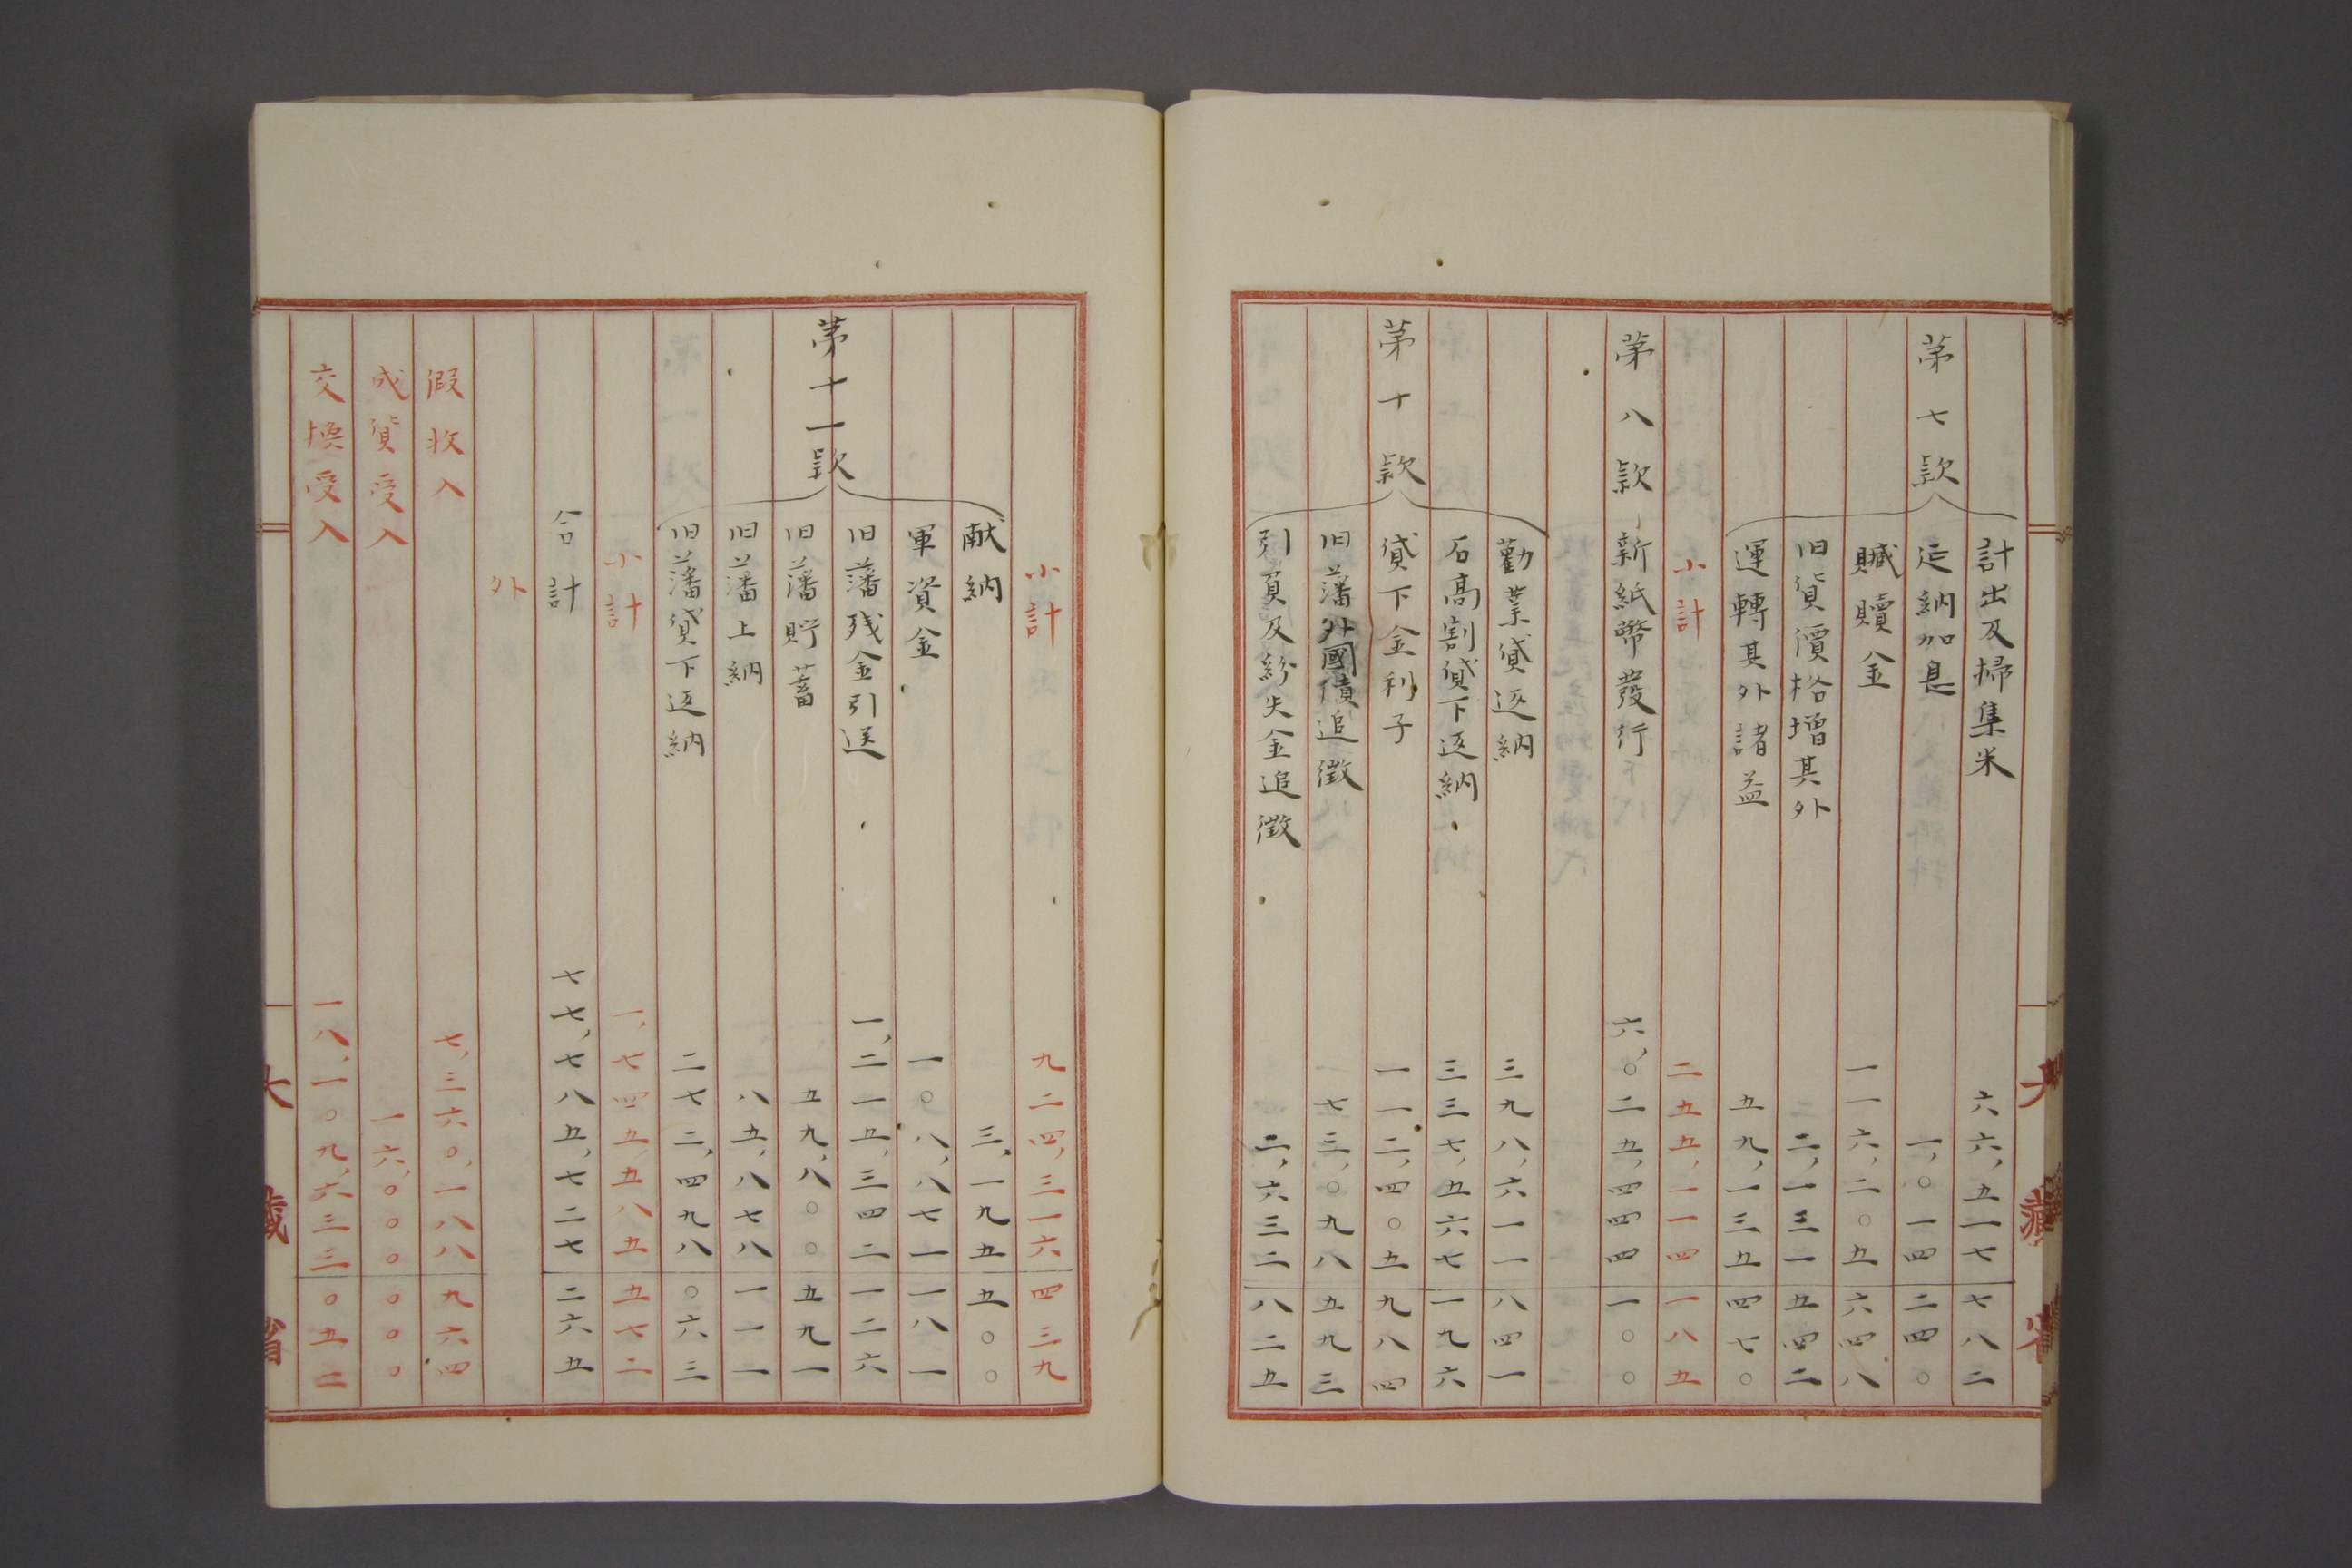 計出及掃集米 六六,五一七 七八二
第七款 延納加息 一,〇一四 二四〇
贓贖金 一一六,二〇五 六四八
旧貨價格増其外 二,一三一 五四二
運轉其外諸益 五九,一三五 四七〇
小計 二五五,一一四 一八五
第八款 新紙幣發行 六,〇二五,四四四 一〇〇
勸業貸返納 三九八,六一一 八四一
石高割貸下返納 三三七,五六七 一九六
第十款 貸下金利子 一一二,四〇五 九八四
旧藩外國債追徴 七三,〇九八 五九三
引負及紛失金追徴 二,六三二 八二五
小計 九二四,三一六 四三九
献納 三,一九五 五〇〇
軍資金 一〇八,八七一 一八一
第十一款 旧藩残金引送 一,二一五,三四二 一二六
旧藩貯蓄 五九,八〇〇 五九一
旧藩上納 八五,八七八 一一一
旧藩貸下返納 二七二,四九八 〇六三
小計 一,七四五,五八五 五七二
合計 七七,七八五,七二七 二六五
外
假收入 七,三六〇,一八八 九六四
成貨受入 一六,〇〇〇 〇〇〇
交換受入 一八,一〇九,六三三 〇五二
大藏省